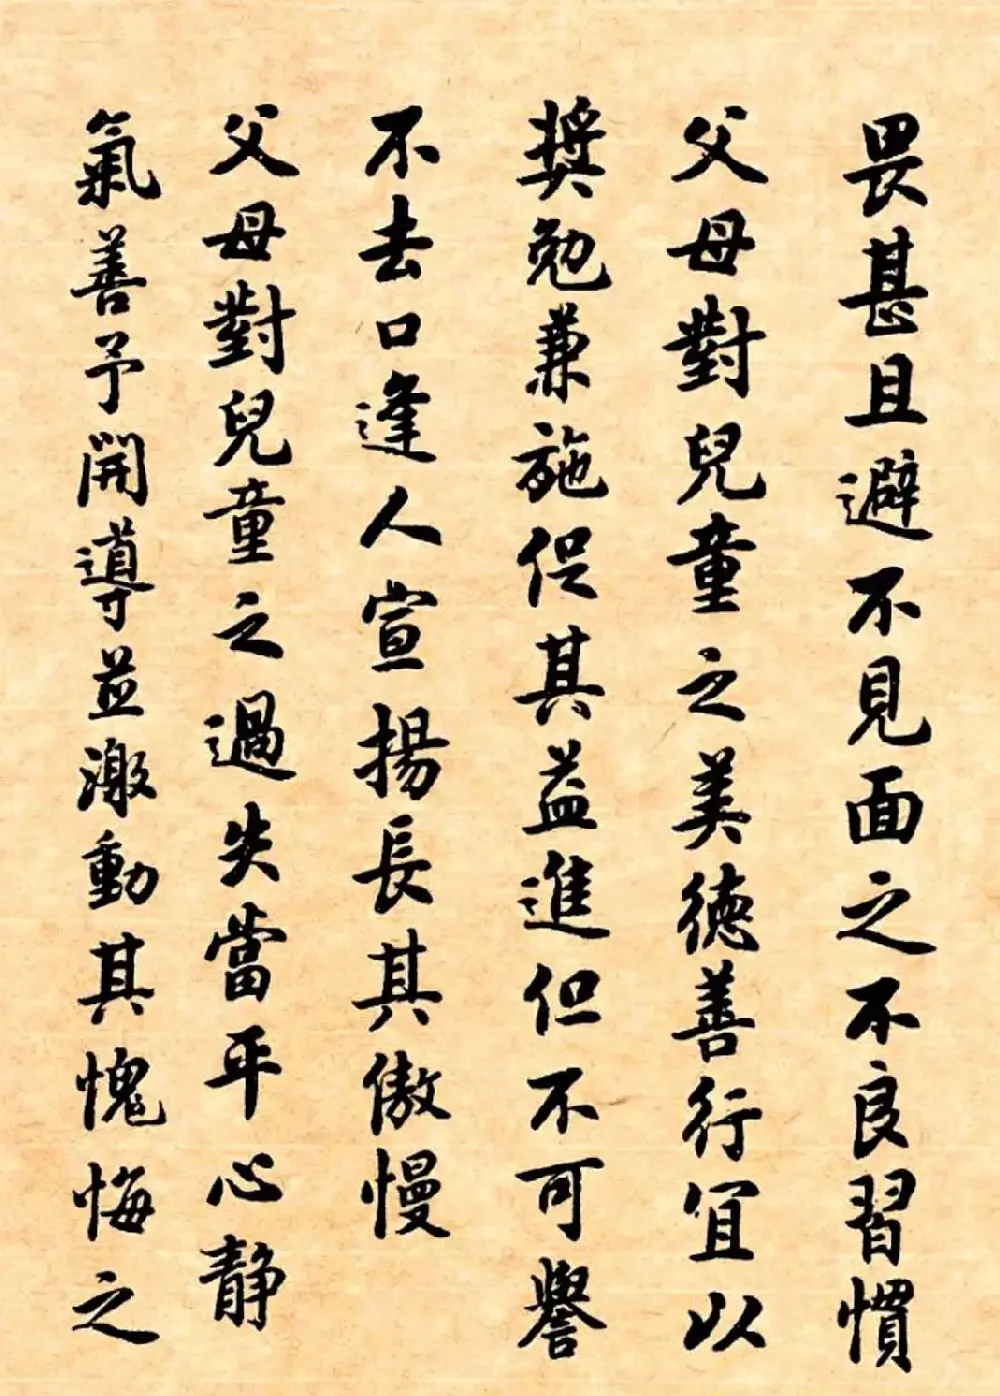 畏甚且避不見面之不良習慣
父母對兒童之美德善行宜以
奬勉兼施促其益進但不可譽
不去口逢人宣揚長其傲慢
父母對兒童之過失當平心静
氣善予開導並激動其愧悔之